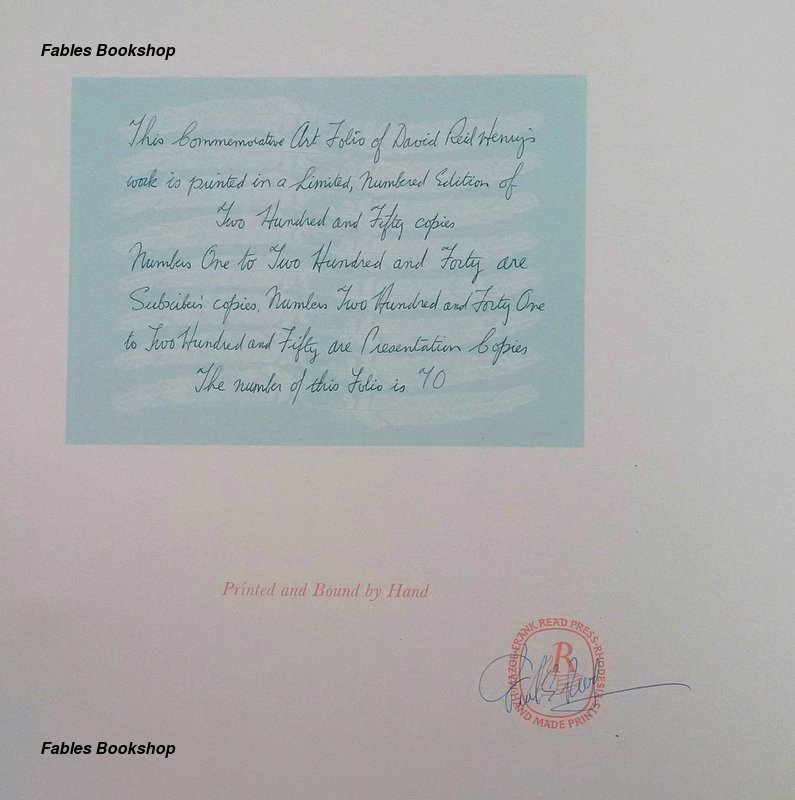 Fables Bookshop
This Commemorative Art Folio of David Reid Henry's
work is printed in a Limited, Numbered Edition of
Two Hundred and Fifty copies
Numbers One to Two Hundred and Forty are
Subscibers' copies. Numbers Two Hundred and Forty One
to Two Hundred and Fifty are Presentation Copies
The number of this Folio is 70
Printed and Bound by Hand
MAZOE · FRANK READ PRESS · RHODESIA
R
HAND MADE PRINTS
Fables Bookshop